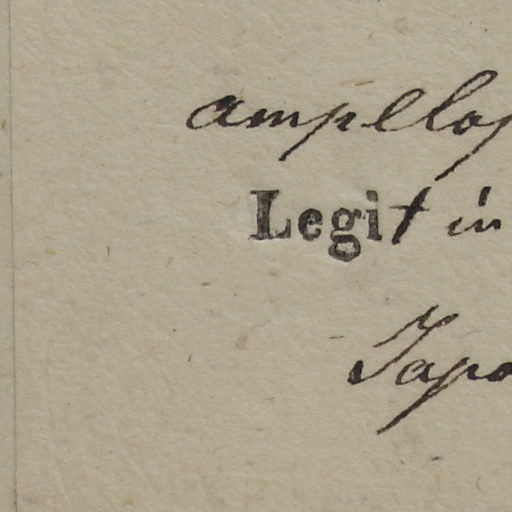 ampelop
Legit in
Japo